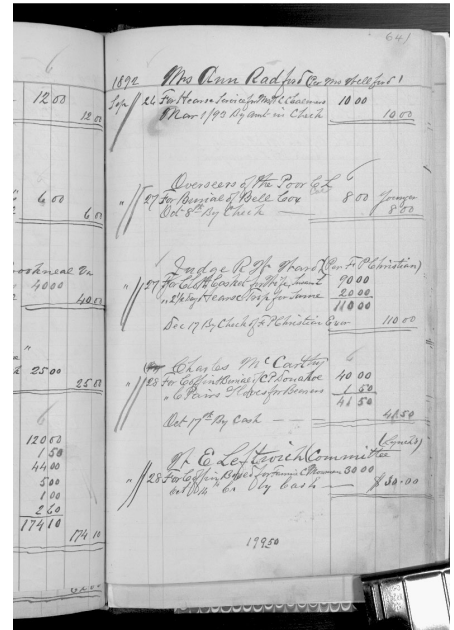 641
6
12 00
12 00
"
6 00
6 00
oshneal Va
40 00
40 00
"
25 00
25 00
6
120 00
1 50
44 00
5 00
1 00
2 60
174 10
174 10
1892 Mrs Ann Radford (Per Mrs Wellford)
Sep 26 For Hearse Service for 10 00
Mar 1/93 By amt in Check 10 00
Overseers of the Poor C L
6
" 27 For Burial of Bell Cox 8 00
Oct 8th By Check — 8 00
Judge R H Ward (Per F P Christian)
" 27 For Cloth Casket 90 00
" 2 1/2 days Hearse for same 20 00
110 00
Dec 17 By Check of F P Christian Exor 110 00
Charles McCarthy
6
" 28 For Coffin & Burial of C P Donahoe 40 00
" 6 Pairs Gloves for Bearers 1 50
41 50
Oct 17th By Cash — 41 50
(Lynch's)
W E Leftwich (Committee
" 28 For Coffin Box &c for 30 00
By Cash — $30.00
199 50